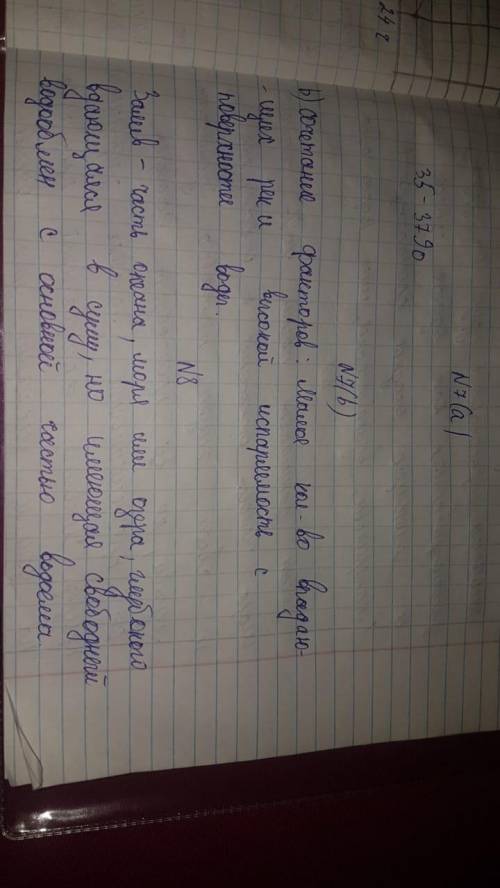 24 г
N7(a)
35-37%
N7(b)
b) сочетание факторов: Малое кол-во впадаю-
-щих рек и высокой испаряемость с
поверхности воды.
N8
Залив - часть океана, моря или озера, глубокого
вдающаяся в сушу, но имеющая свободный
водообмен с основной частью водоёма.